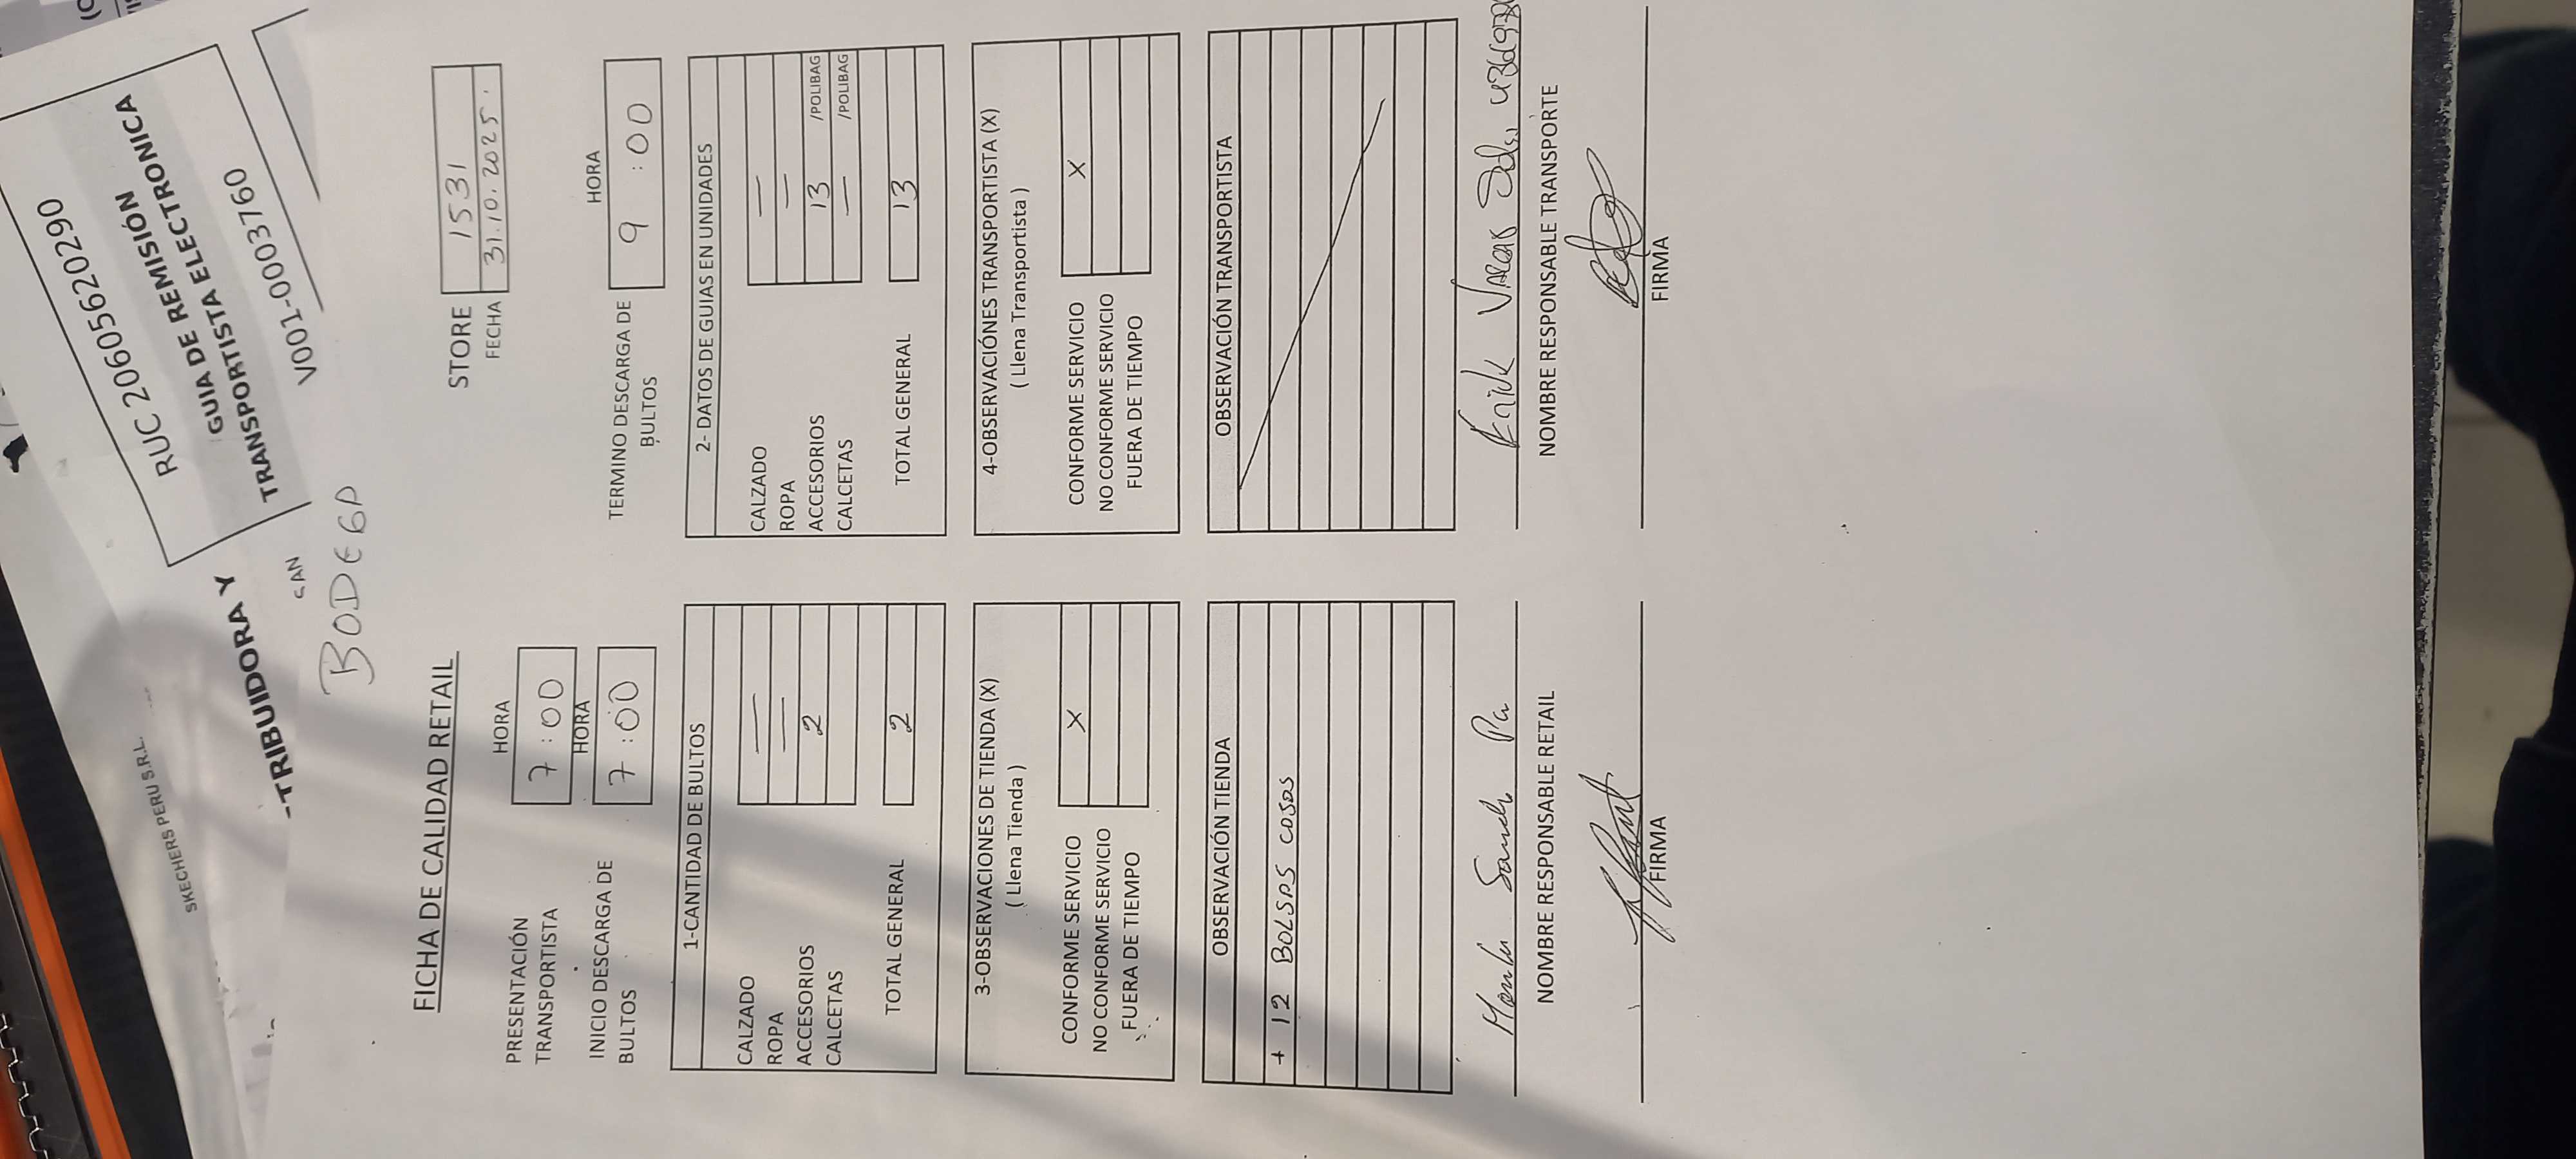 RUC 20605620290
GUIA DE REMISIÓN
TRANSPORTISTA ELECTRONICA
V001-00003760
SKECHERS PERU S.R.L.
TRIBUIDORA Y
BODEGA
FICHA DE CALIDAD RETAIL
STORE 1531
FECHA 31.10.2025.
HORA
PRESENTACIÓN
TRANSPORTISTA 7:00
HORA
INICIO DESCARGA DE
BULTOS 7:00
HORA
TERMINO DESCARGA DE
BULTOS 9:00
1-CANTIDAD DE BULTOS
CALZADO —
ROPA —
ACCESORIOS 2
CALCETAS
TOTAL GENERAL 2
2- DATOS DE GUIAS EN UNIDADES
CALZADO —
ROPA —
ACCESORIOS 13 /POLIBAG
CALCETAS — /POLIBAG
TOTAL GENERAL 13
3-OBSERVACIONES DE TIENDA (X)
( Llena Tienda )
CONFORME SERVICIO X
NO CONFORME SERVICIO
FUERA DE TIEMPO
4-OBSERVACIÓNES TRANSPORTISTA (X)
( Llena Transportista )
CONFORME SERVICIO X
NO CONFORME SERVICIO
FUERA DE TIEMPO
OBSERVACIÓN TIENDA
+ 12 BOLSAS COSAS
OBSERVACIÓN TRANSPORTISTA
NOMBRE RESPONSABLE RETAIL
FIRMA
Vargas
NOMBRE RESPONSABLE TRANSPORTE
FIRMA